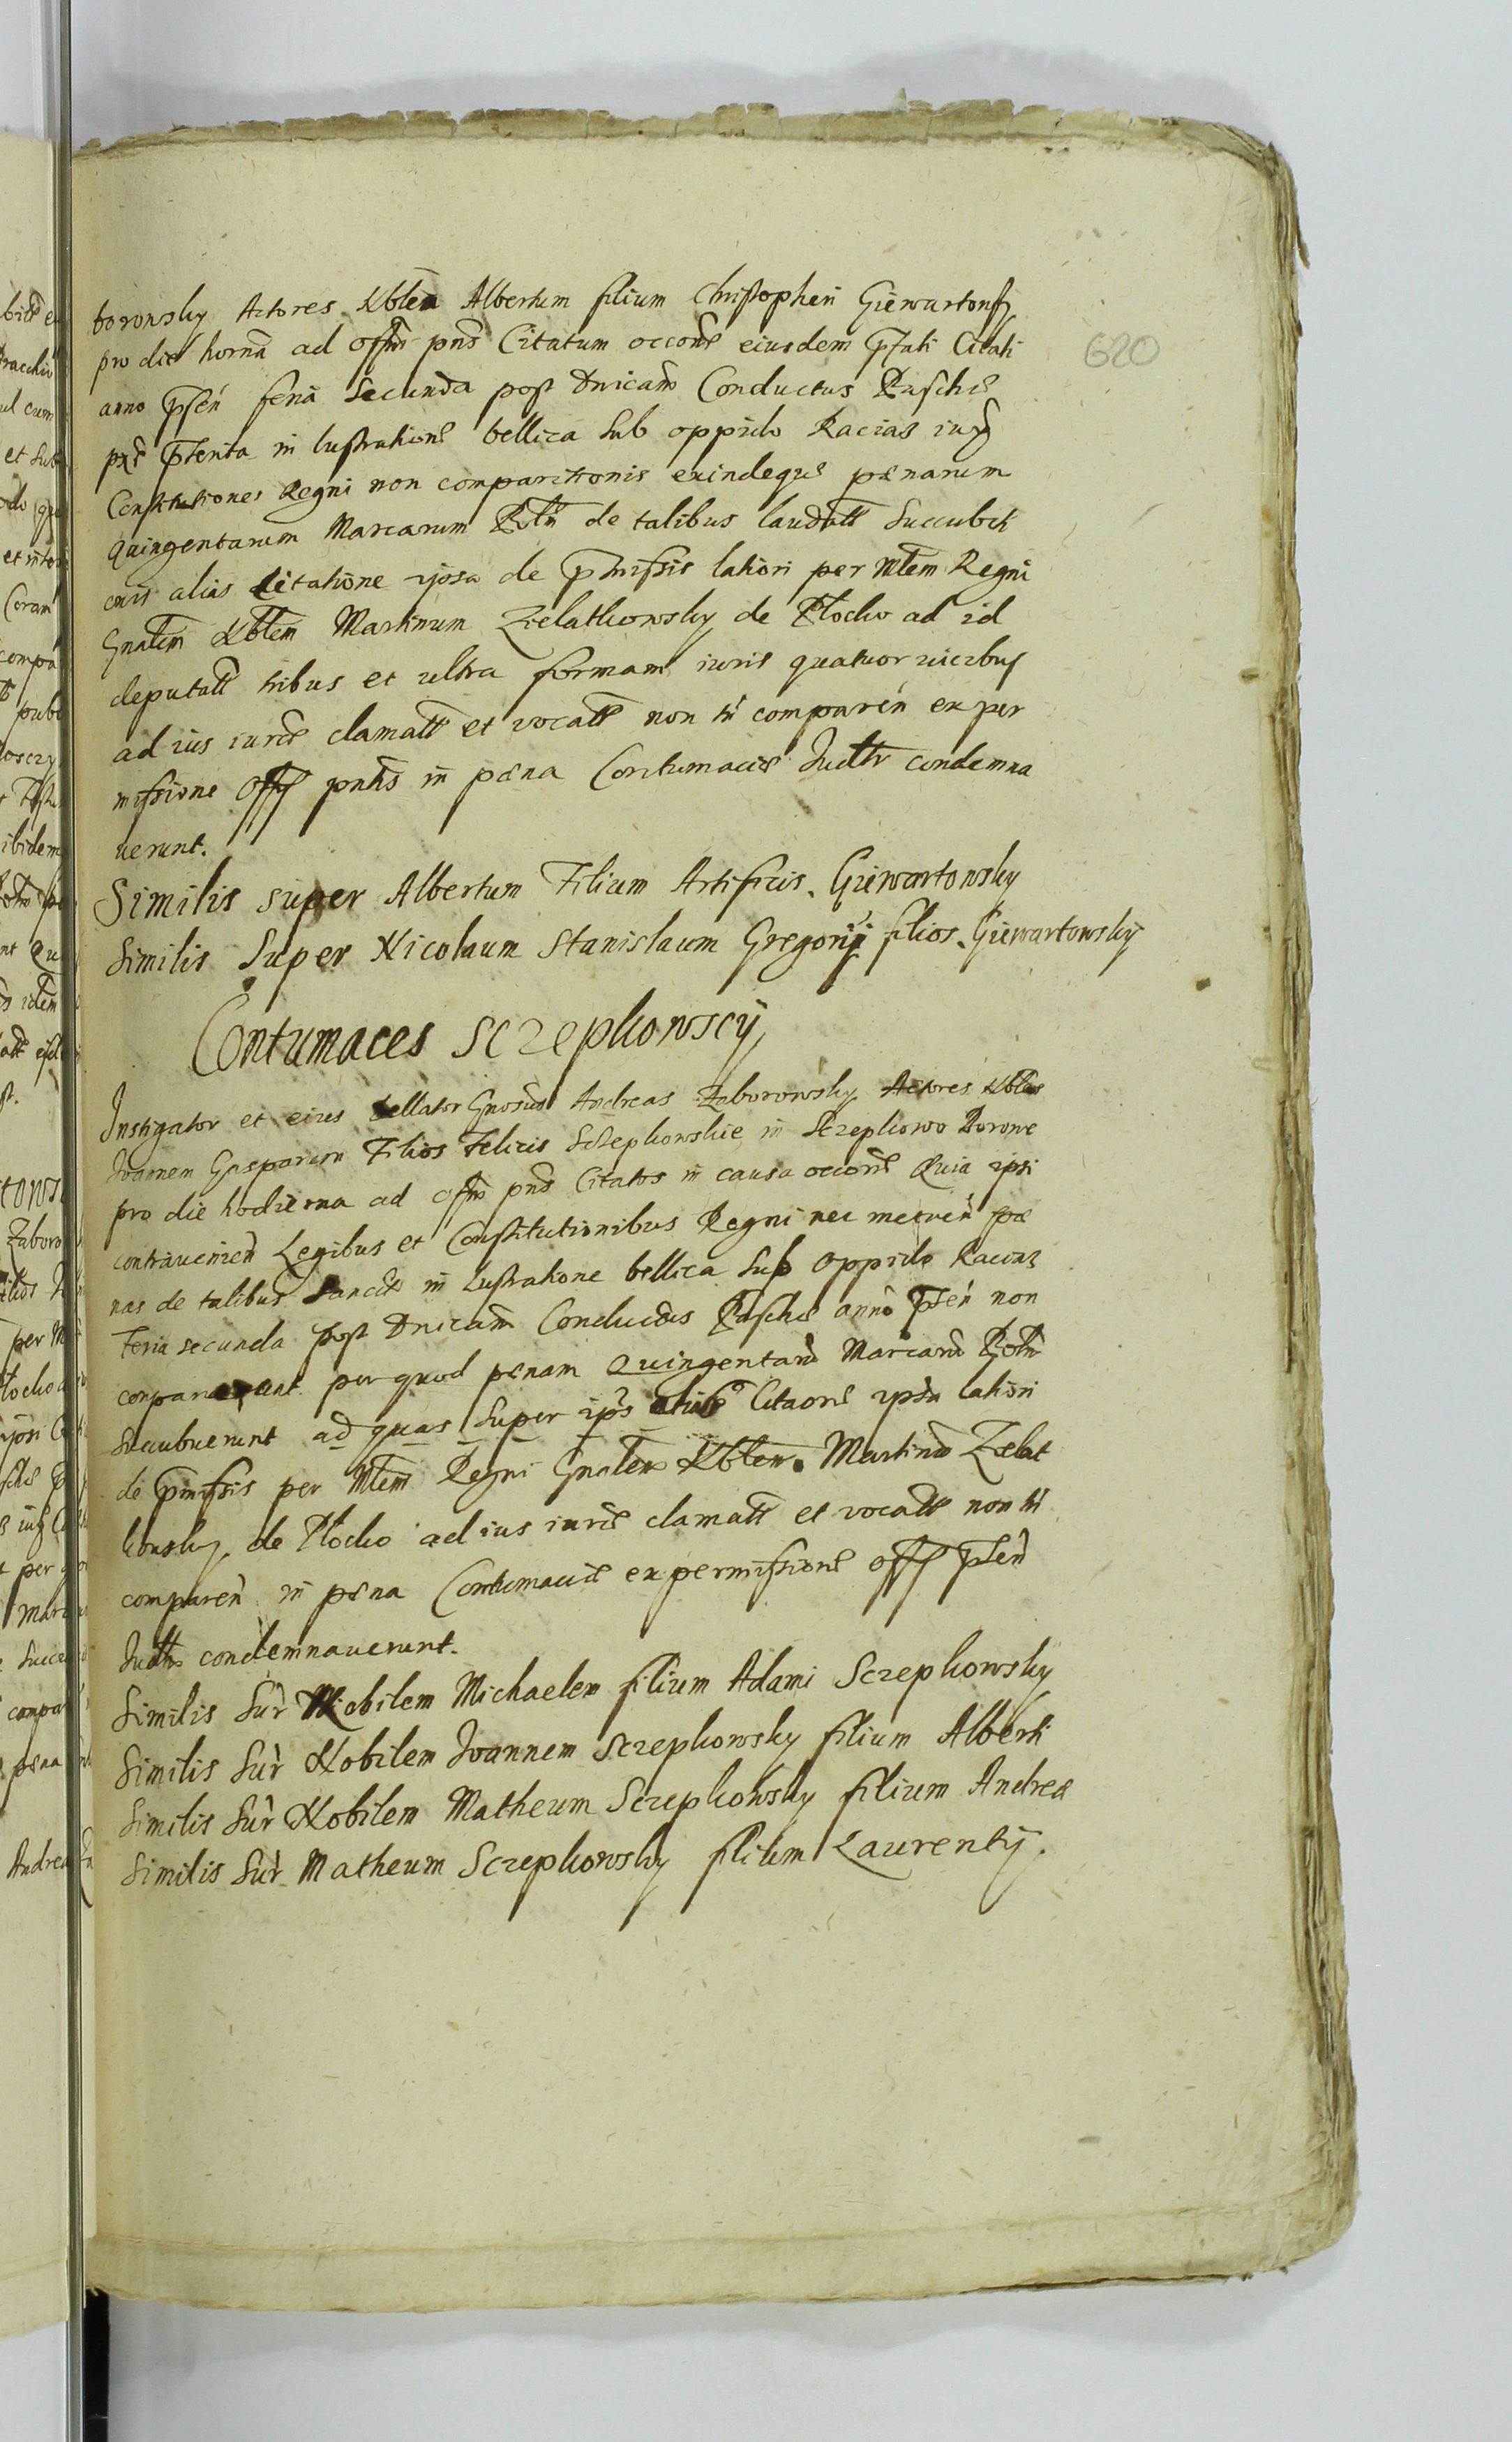 boronsky Actores Nblem Albertum filium Christopheri Giewartows
pro die horna ad offm pns Citatum occone eiusdem pstati Citati
620
anno psen feria Secunda post dnicam Conductus Paschæ
ptenta in lustratione bellica Sub oppido Racias iux
Constitutiones Regni non comparitionis exindeque pænarum
Quingentarum Marcarum Poln de talibus laudatt Succubiti
onis alias Citatione ipsa de pmissis latiori per Mtem Regni
Gnalem Nblem Martinum Zielatkowsky de Plocko ad id
deputatt tribus et ultra formam iuris quatuor vicibus
ad ius iurde clamatt et vocatt non tn comparen ex per
missione Offy pntis in pæna Contumaciæ Judtr condemna
uerunt.
Similis super Albertum Filium Artificis Giewartowsky
Similis Super Nicolaum Stanislaum Gregorij filios Giewartowskÿ
Contumaces Sczepkowscÿ
Instigator et eius dellator Gnosus Andreas Zaborowsky Actores Nbles
Joannem Gasparum Filios Felicis Sczepkowskie in Sczepkowo Borowe
pro die hodierna ad offm pns Citatos in causa occone Quia ipsi
contravenien Legibus et Constitutionibus Regni nec metuen pæ
nas de talibus Sancit in Lustratione bellica Sub Oppido Racias
Feria secunda post dnicam Conductus Paschæ anno psen non
comparuerunt per quod pænam Quingentarum Marcarum Poln
Succubuerunt ad quas Super ipos Citaone ipsm latiori
de pmissis per Mtem Regni Gnalem Nblem Martinum Zielat
kowsky de Plocko ad ius iurde clamatt et vocatt non tn
comparen in pæna Contumaciæ ex permissione offy psen
Judtr condemnaverunt.
Similis Supr Nobilem Michaelem filium Adami Sczepkowskÿ
Similis Supr Nobilem Joannem Sczepkowsky filium Alberti
Similis Supr Nobilem Matheum Sczepkowsky filium Andreæ
Similis Supr Matheum Sczepkowsky filium Laurentÿ.